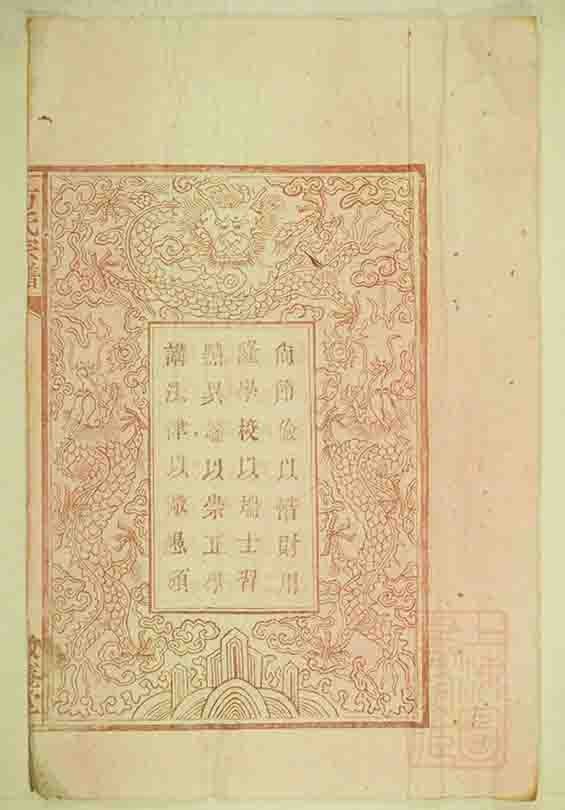 尙節儉以惜財用
隆學校以端士習
黜異端以崇正學
講法律以儆愚頑
氏宗譜